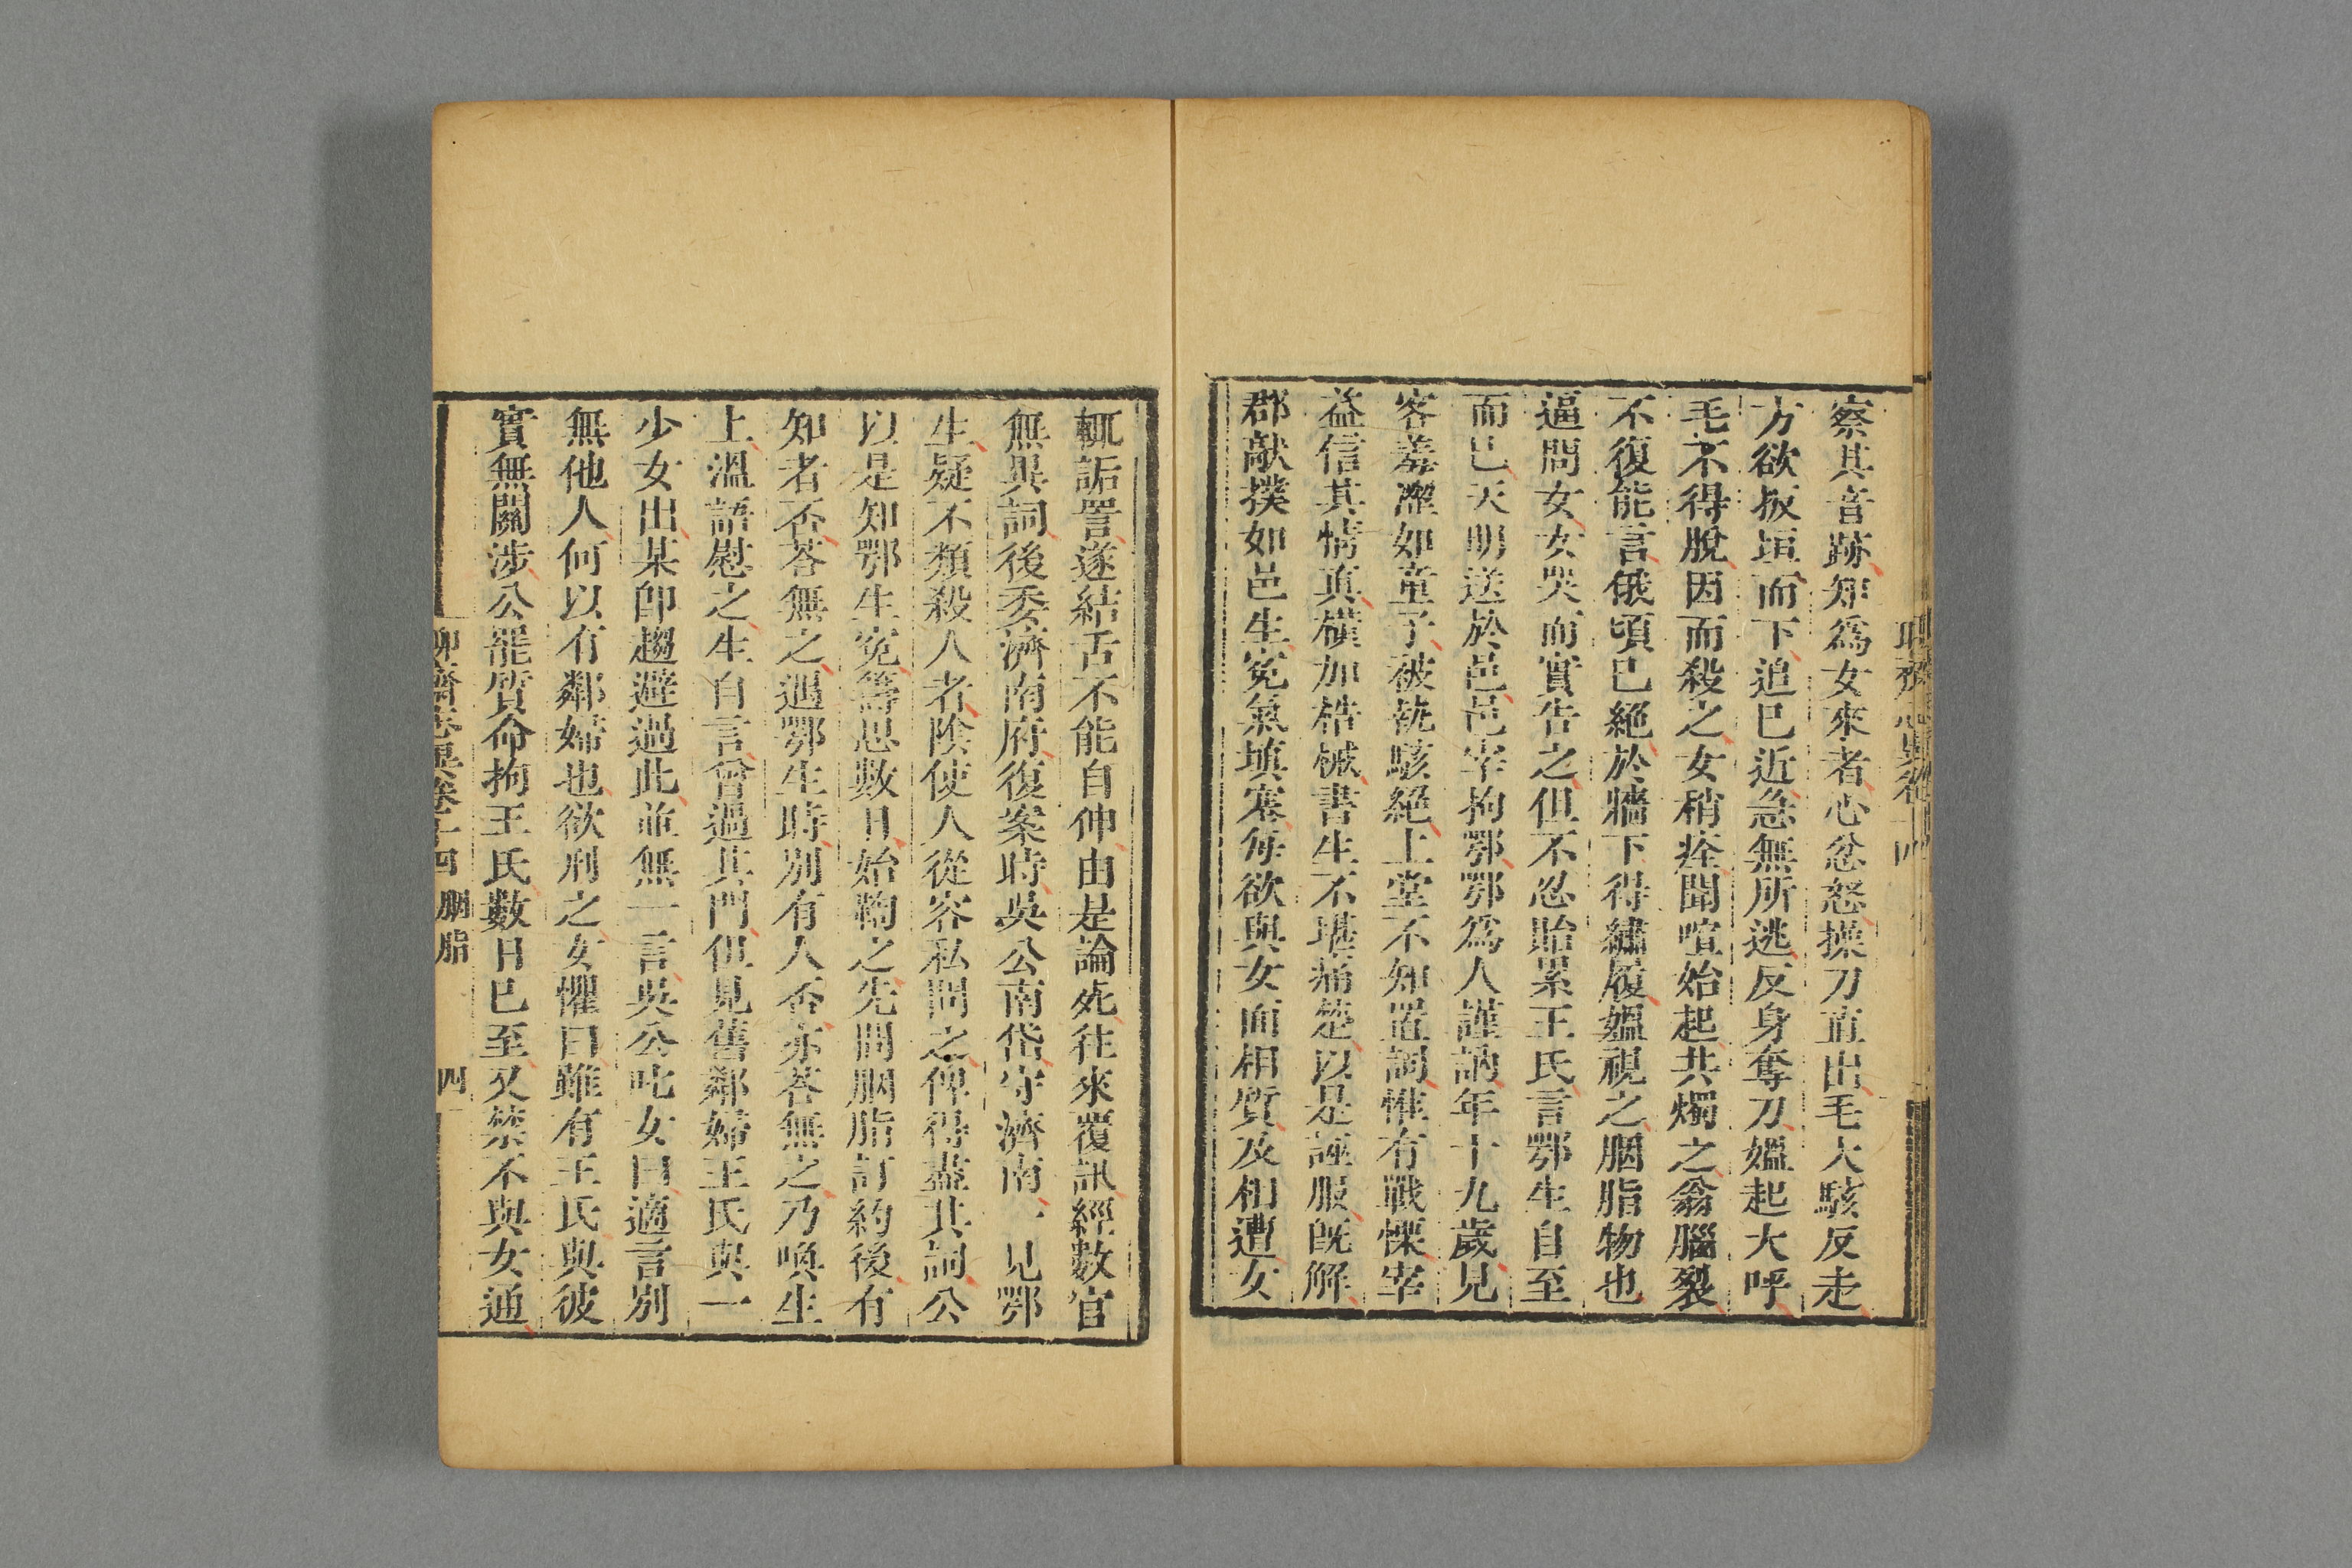 察其音跡知爲女來者心忿怒操刀直出毛大駭反走
方欲扳垣而下追已近急無所逃反身奪刀媼起大呼
毛不得脫因而殺之女稍痊聞喧始起共燭之翁腦裂
不復能言俄頃已絕於牆下得繡履媼視之胭脂物也
逼問女女哭而實告之但不忍貽累王氏言鄂生自至
而已天明送於邑邑宰拘鄂鄂爲人謹訥年十九歲見
客羞澀如童子被執駭絕上堂不知置詞惟有戰慄宰
益信其情真橫加梏械書生不堪痛楚以是誣服旣解
郡敲撲如邑生冤氣塡塞每欲與女面相質及相遭女
輒詬詈遂結舌不能自伸由是論死往來覆訊經數官
無異詞後委濟南府復案時吳公南岱守濟南一見鄂
生疑不類殺人者陰使人從容私問之俾得盡其詞公
以是知鄂生冤籌思數日始鞫之先問胭脂訂約後有
知者否荅無之遇鄂生時別有人否亦荅無之乃喚生
上溫語慰之生自言曾過其門但見舊鄰婦王氏與一
少女出某卽趨避過此並無一言吳公叱女曰適言別
無他人何以有鄰婦也欲刑之女懼曰雖有王氏與彼
實無關涉公罷質命拘王氏數日已至又禁不與女通
聊齋志異卷十四 胭脂 四